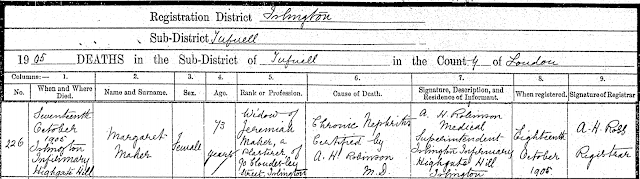 Registration District Islington
Sub-District Tufnell
1905 DEATHS in the Sub-District of Tufnell in the County of London
Columns:— 1. 2. 3. 4. 5. 6. 7. 8. 9.
No. When and Where Died. Name and Surname. Sex. Age. Rank or Profession. Cause of Death. Signature, Description, and Residence of Informant. When registered. Signature of Registrar
226
Seventeenth
October
1905
Islington
Infirmary
Highgate Hill
Margaret
Maker
Female
73
years
Widow of
Jeremiah
Maker, a
Plasterer of
90 Cloudesley
Street, Islington
Chronic Nephritis
Certified by
A. H. Robinson
M.D.
A. H. Robinson
Medical
Superintendent
Islington Infirmary
Highgate Hill
Islington
Eighteenth
October
1905
A. H. Ross
Registrar